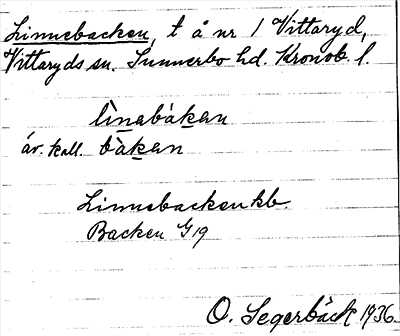 Linnebacken, t å nr 1 Vittaryd,
Vittaryds sn. Sunnerbo hd. Kronob. l.
lìnabàkan
äv. kall. bàkan
Linnebacken kb.
Backen G19
O. Segerbäck 1936.